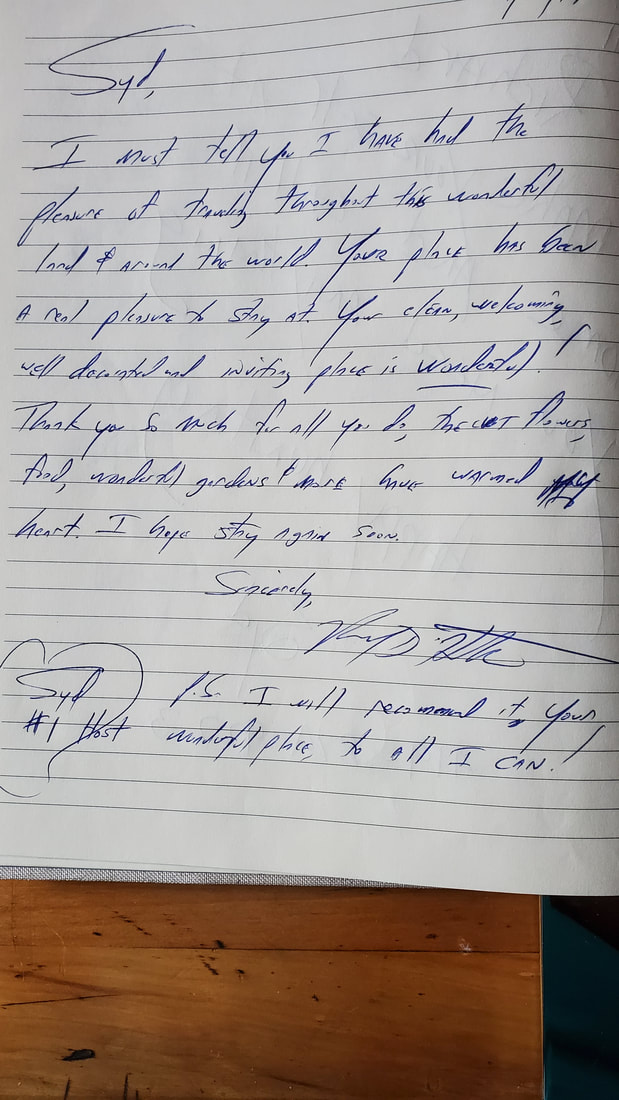 Syd,
I must tell you I have had the
pleasure of traveling throughout this wonderful
land & around the world. Your place has been
a real pleasure to stay at. Your clean, welcoming,
well decorated and inviting place is wonderful!
Thank you so much for all you do, the cut flowers,
food, wonderful gardens & more have warmed my
heart. I hope stay again soon.
Sincerely,
Syd
#1 Host
P.S. I will recommend it, your
wonderful place, to all I can!